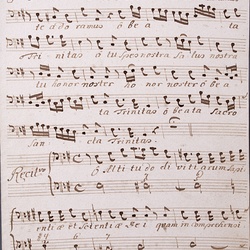 te adoramus o bea ta
Trinitas a tu spes nostra Salus nostra
tu honor noster ho nor noster o bea
ta Trinitas o beata Sacro
San cta Trinitas.
Recit:vo O Altitudo divitiarum Sapi:
entiæ et Scientiæ Dei quam incomprehensi